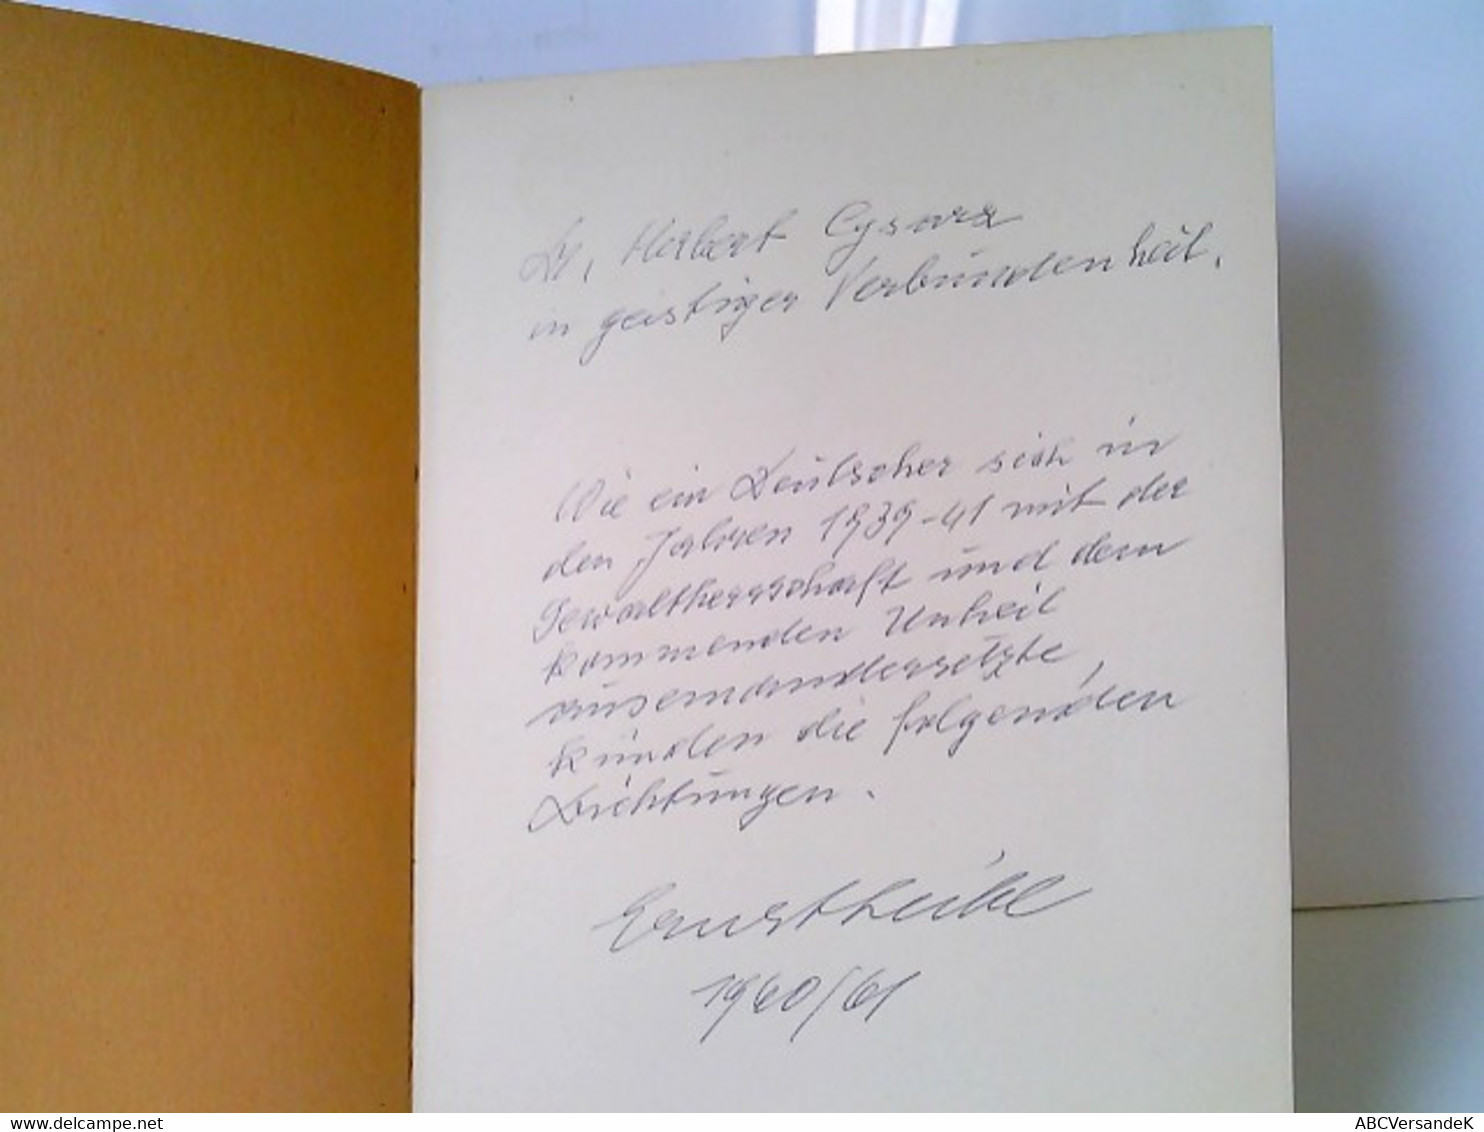 Dr. Herbert Cysarz
in geistiger Verbundenheit.
Wie ein Deutscher sich in
den Jahren 1939-41 mit der
Gewaltherrschaft und dem
kommenden Unheil
auseinandersetzte,
künden die folgenden
Dichtungen.
Ernst Leibl
1960/61
delcampe.net
ABCVersandeK